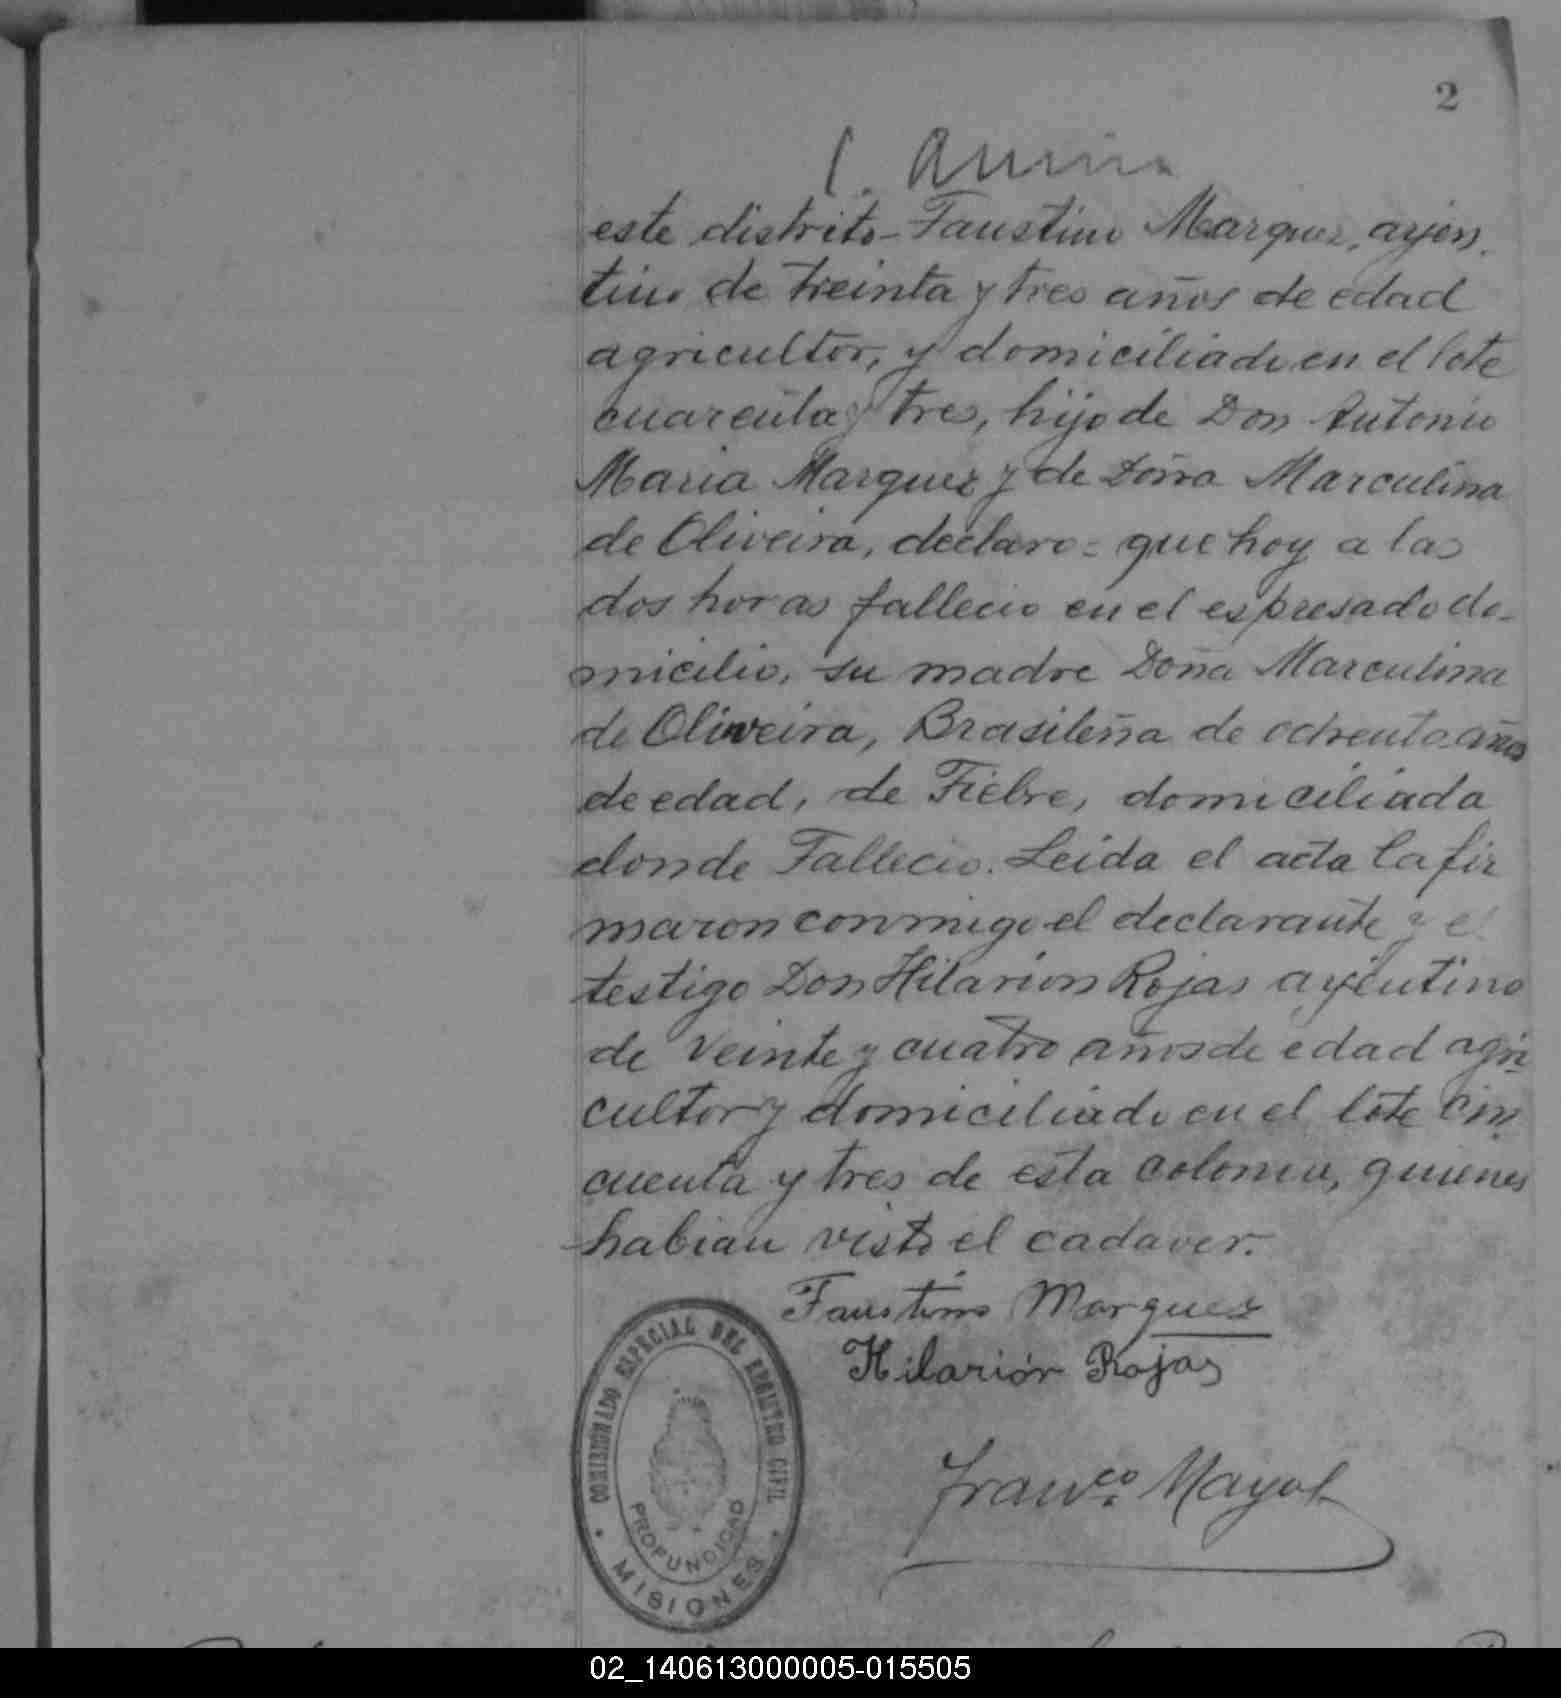 2
este distrito-Faustino Marquez, arjen.
tino de treinta y tres años de edad
agricultor, y domiciliado en el lote
cuarenta y tres, hijo de Don Antonio
Maria Marquez y de Doña Marculina
de Oliveira, declaro= que hoy a las
dos horas fallecio en el espresado do-
micilio, su madre Doña Marculina
de Oliveira, Brasileña de ochenta años
de edad, de Fiebre, domiciliada
donde Fallecio. Leida el acta la fir
maron conmigo el declarante y el
testigo Don Hilarion Rojas arjentino
de veinte y cuatro años de edad agri
cultor y domiciliado en el lote cin
cuenta y tres de esta colonia, quienes
habian visto el cadaver.
Faustino Marquez
Hilarión Rojas
Franco. Mayol
COMISIONADO ESPECIAL DEL REGISTRO CIVIL
PROFUNDIDAD
MISIONES
02_140613000005-015505